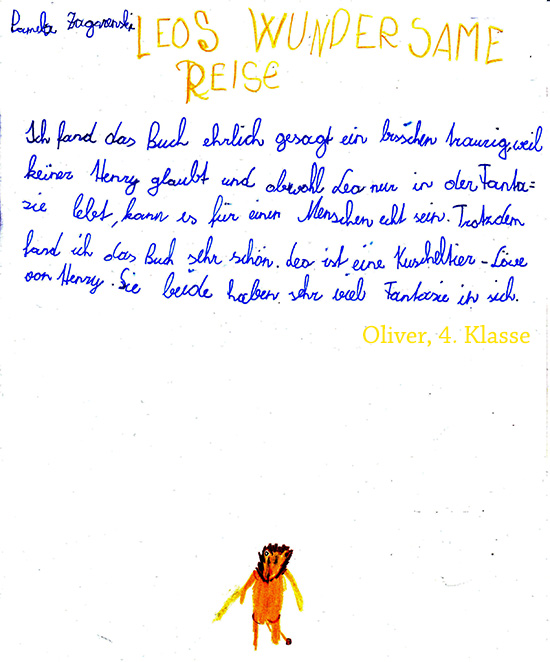 Pamela Zagarenski
LEOS WUNDERSAME
REISE
Ich fand das Buch ehrlich gesagt ein bisschen traurig, weil
keiner Henry glaubt und obwohl Leo nur in der Fanta=
sie lebt, kann es für einen Menschen echt sein. Trotzdem
fand ich das Buch sehr schön. Leo ist eine Kuscheltier-Löwe
von Henry. Sie beide haben sehr viel Fantasie in sich.
Oliver, 4. Klasse